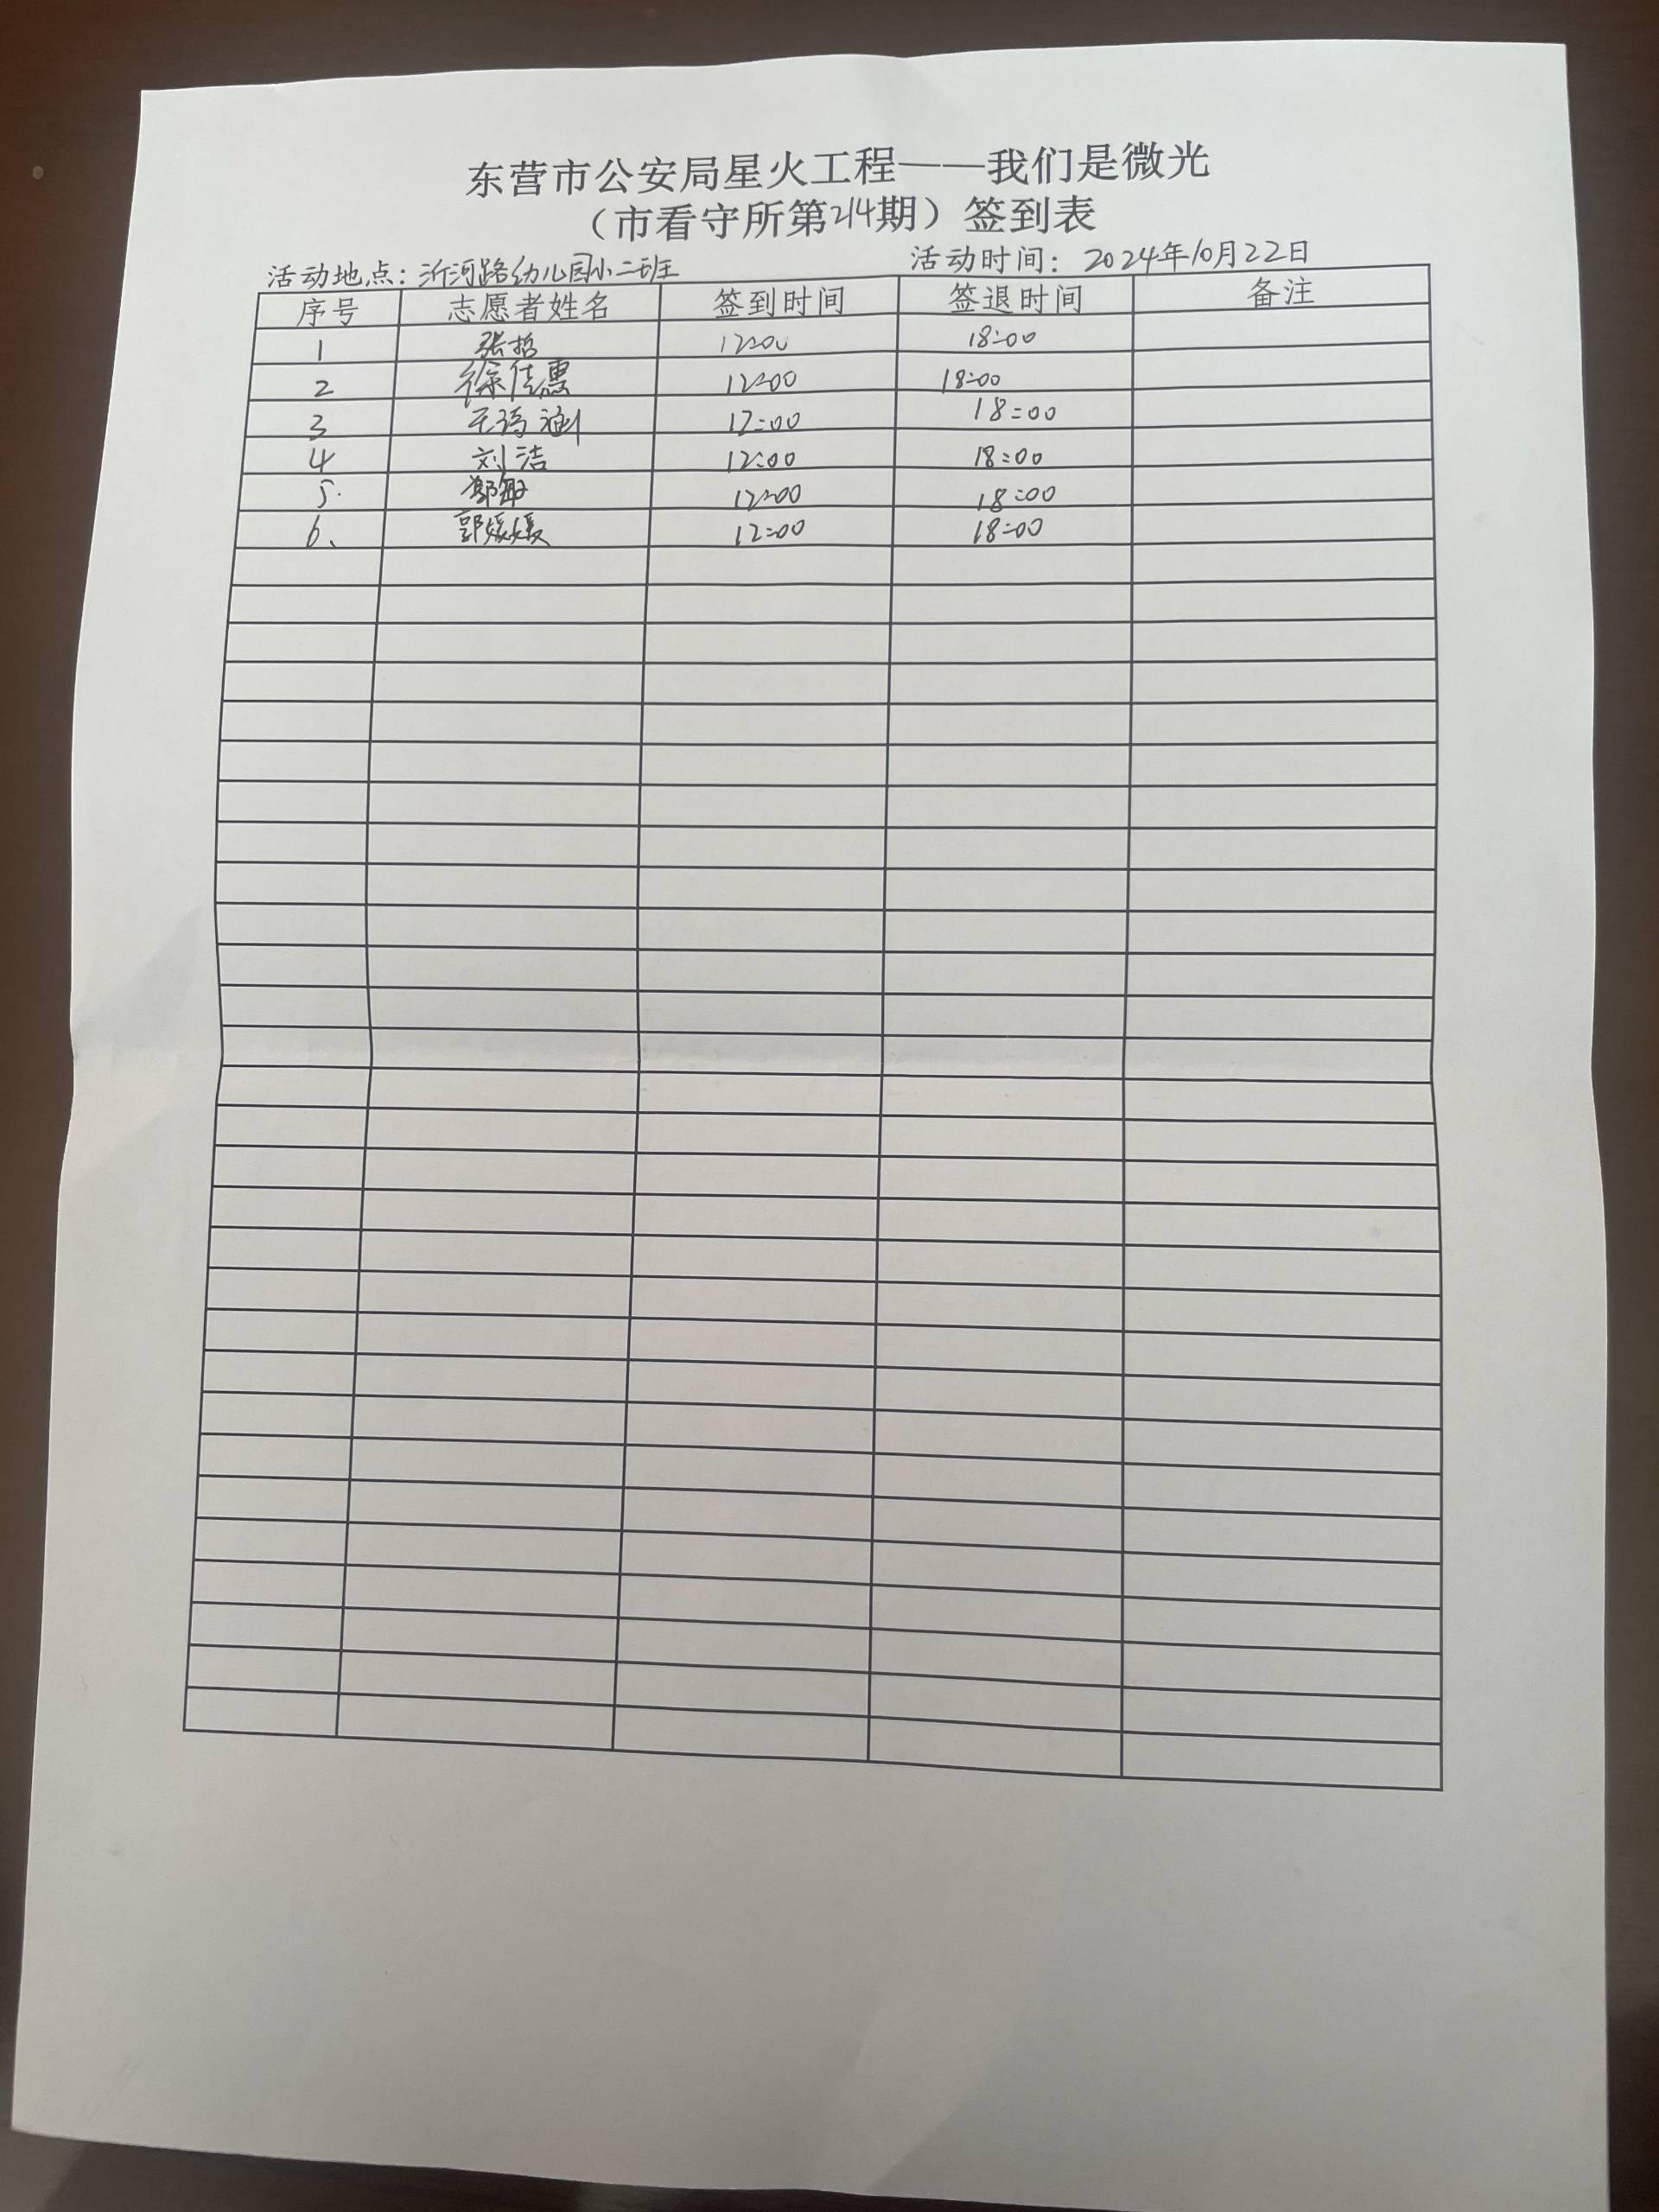 东营市公安局星火工程——我们是微光
（市看守所第214期）签到表
活动地点：沂河路幼儿园小二班 活动时间：2024年10月22日
序号 志愿者姓名 签到时间 签退时间 备注
1 张哲 12:00 18:00
2 徐佳惠 12:00 18:00
3 王诗涵 12:00 18:00
4 刘洁 12:00 18:00
5. 12:00 18:00
6、 郭媛媛 12:00 18:00